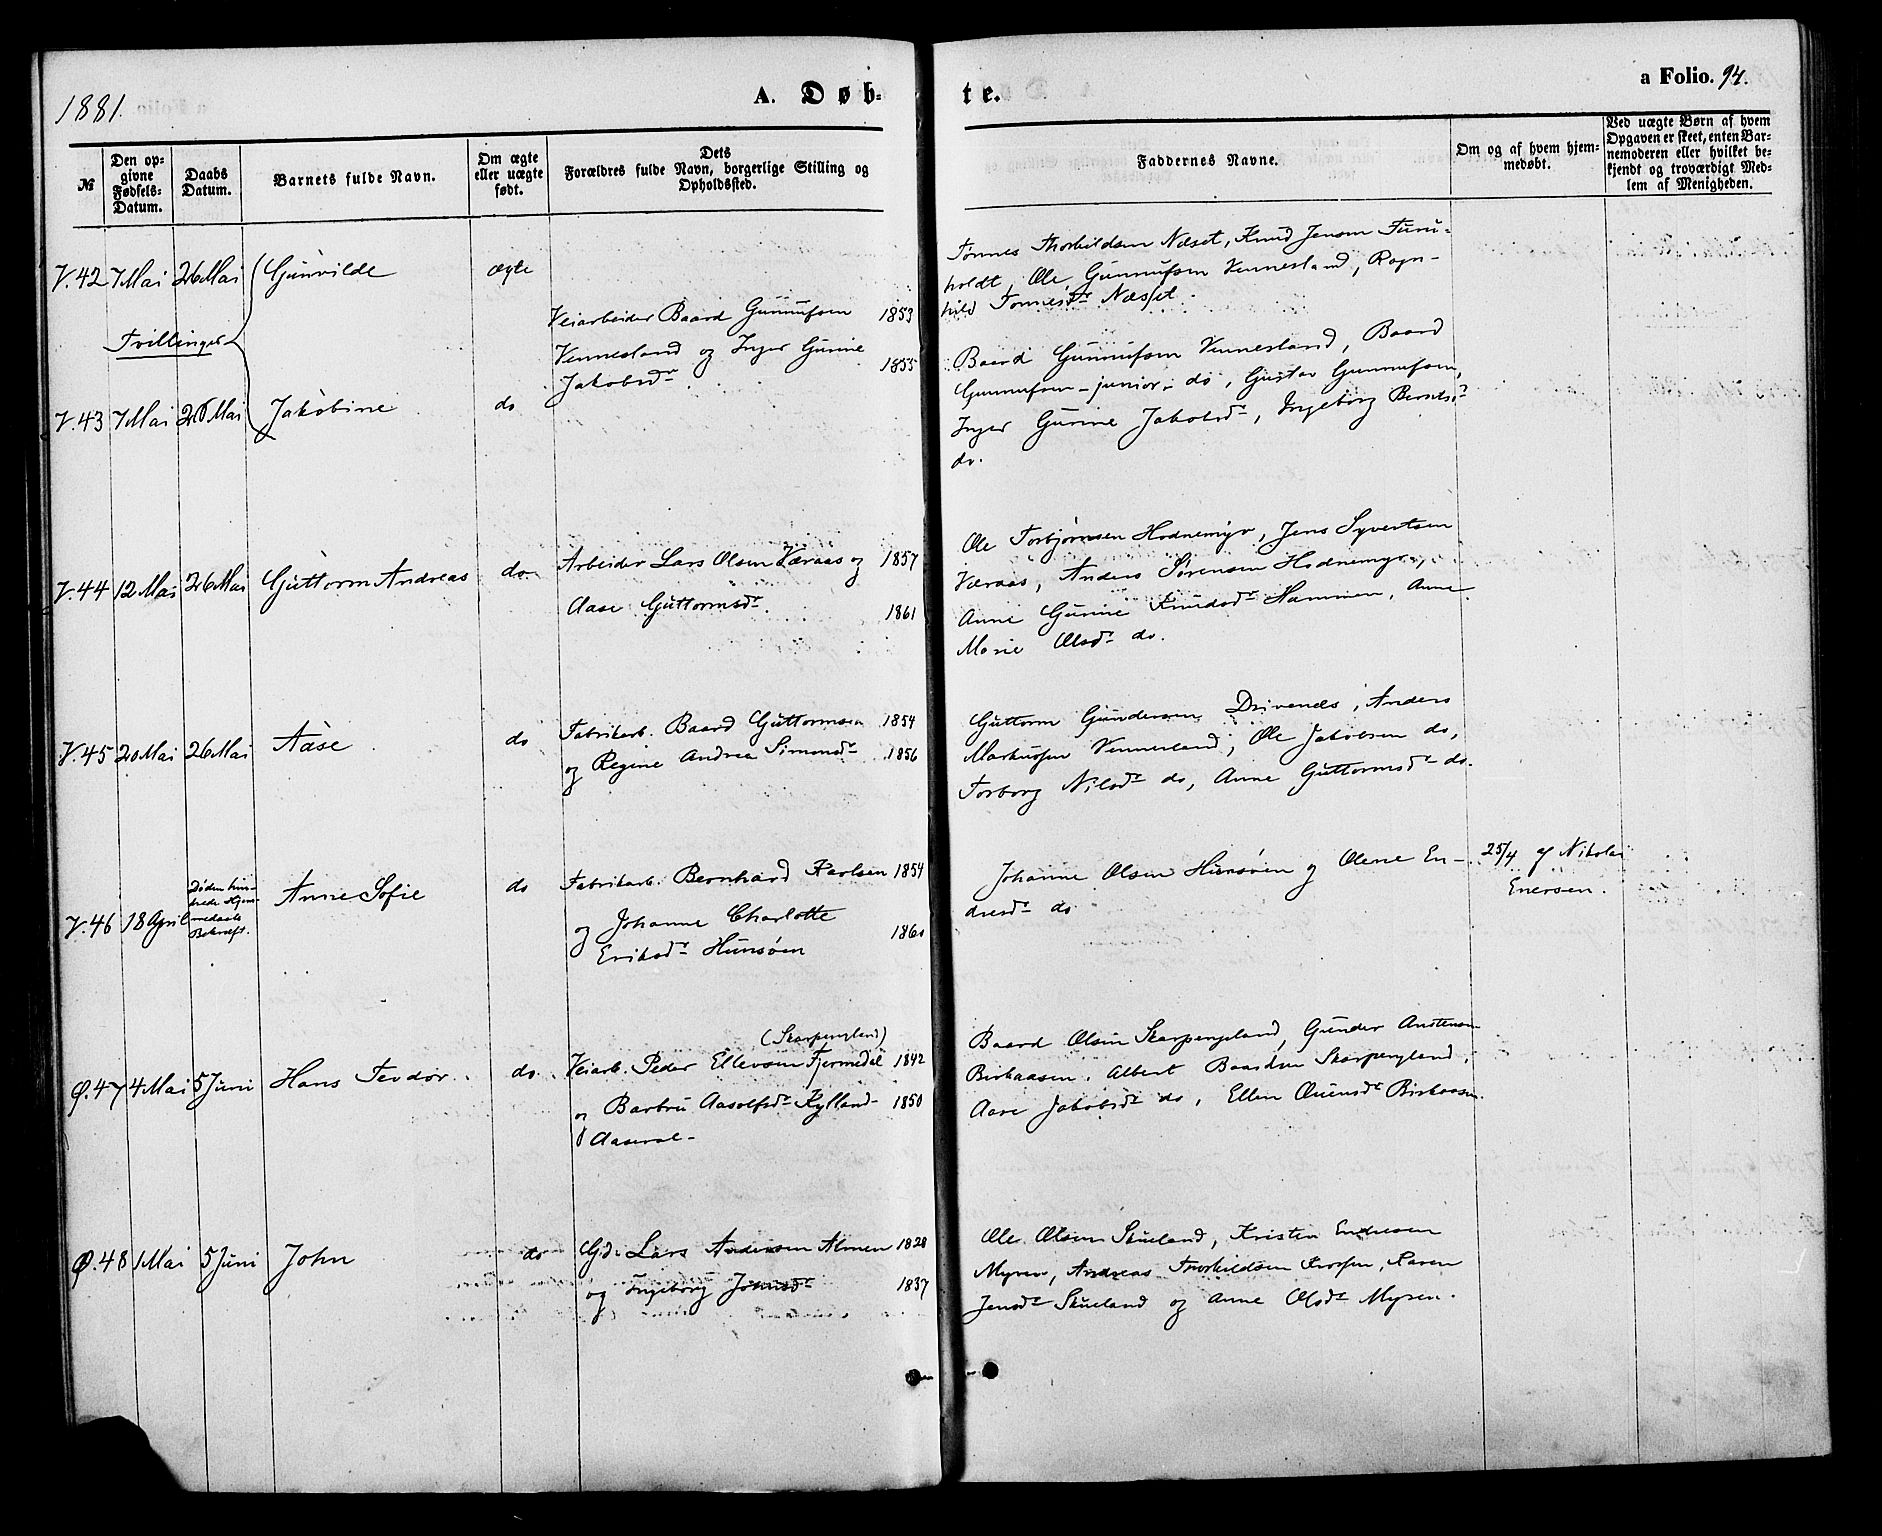 1881.
A. Døb-
te.
a Folio. 94.
№
Den op-
givne
Fødsels-
Datum.
Daabs
Datum.
Barnets fulde Navn.
Om ægte
eller uægte
født.
Dets
Forældres fulde Navn, borgerlige Stilling og
Opholdssted.
Faddernes Navne.
Om og af hvem hjem-
medøbt.
Ved uægte Børn af hvem
Opgaven er skeet, enten Bar-
nemoderen eller hvilket be-
kjendt og troværdigt Med-
lem af Menigheden.
V.42 7 Mai 26 Mai Gunvilde ægte
Tvillinger
Veiarbeider Baard Gunnufsen 1853
Vennesland og Inger Gurine 1855
Jakobsdr.
Tønnes Thorkildsen Næset, Knud Jensen Furu-
holdt, Ole Gunnufsen Vennesland, Ragn-
hild Tønnesdr Næset.
V.43 7 Mai 26 Mai Jakobine do
Baard Gunnufsen Vennesland, Baard
Gunnufsen - junior - do, Gustav Gunnufsen,
Inger Gurine Jakobsdr, Ingeborg Berntsdr
do.
V.44 12 Mai 26 Mai Guttorm Andreas do
Arbeider Lars Olsen Væraas og 1857
Aase Guttormsdr. 1861
Ole Torbjørnsen Hodnemyr, Jens Syvertsen
Væraas, Anders Sørensen Hodnemyr,
Anne Gurine Knudsdr Hammen, Anne
Marie Olsdr do.
V.45 20 Mai 26 Mai Aase do
Fabrikarb. Baard Guttormsen 1854
og Regine Andrea Simonsdr 1856
Guttorm Gundersen Drivenæs, Anders
Markusen Vennesland, Ole Jakobsen do,
Torborg Nilsdr do, Anne Guttormsdr do.
V.46 18 April
Døden hin-
drede Hjem-
medaabs
Bekræft.
Anne Sofie do
Fabrikarb. Bernhard Karlsen 1854
og Johanne Charlotte
Eriksdr Hunsøen 1860
Johanne Olsen Hunsøen og Olene En-
dresdr do
25/4 af Nikolai
Enersen.
Ø.47 4 Mai 5 Juni Hans Tevdor do
(Skarpengland)
Veiarb. Peder Ellevsen Fjermedal 1842
og Barbru Aasolfsdr Kylland 1850
Aaseral
Baard Olsen Skarpengland, Gunder Austensen
Birkaasen, Albert Baardsen Skarpengland,
Aase Jakobsdr do, Ellen Ouensdr Birkaasen.
Ø.48 1 Mai 5 Juni John do
Gd. Lars Andersen Almen 1828
og Ingeborg Jonsdr 1837
Ole Olsen Skueland, Kristen Endresen
Myren, Andreas Thorkildsen, Karen
Jensdr Skueland og Anne Olsdr Myren.